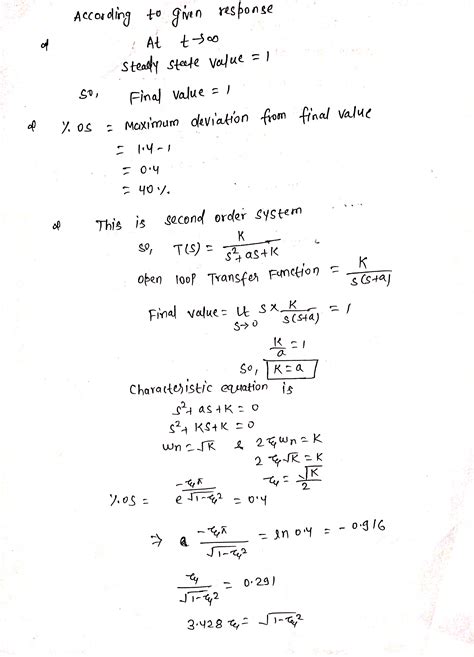 According to given response
At t→∞
Steady state value = 1
So, Final value = 1
% OS = Maximum deviation from final value
= 1.4 - 1
= 0.4
= 40 %.
This is second order system
So, T(s) = K / (s² + as + K)
Open loop Transfer Function = K / (s(s+a))
Final value = Lt s→0 s × K / (s(s+a)) = 1
K/a = 1
So, K = a
Characteristic equation is
s² + as + K = 0
s² + Ks + K = 0
ωn = √K & 2ξωn = K
2ξ√K = K
ξ = √K / 2
%OS = e^(-ξπ / √(1-ξ²)) = 0.4
⇒ -ξπ / √(1-ξ²) = ln 0.4 = -0.916
ξ / √(1-ξ²) = 0.291
3.428 ξ = √(1-ξ²)